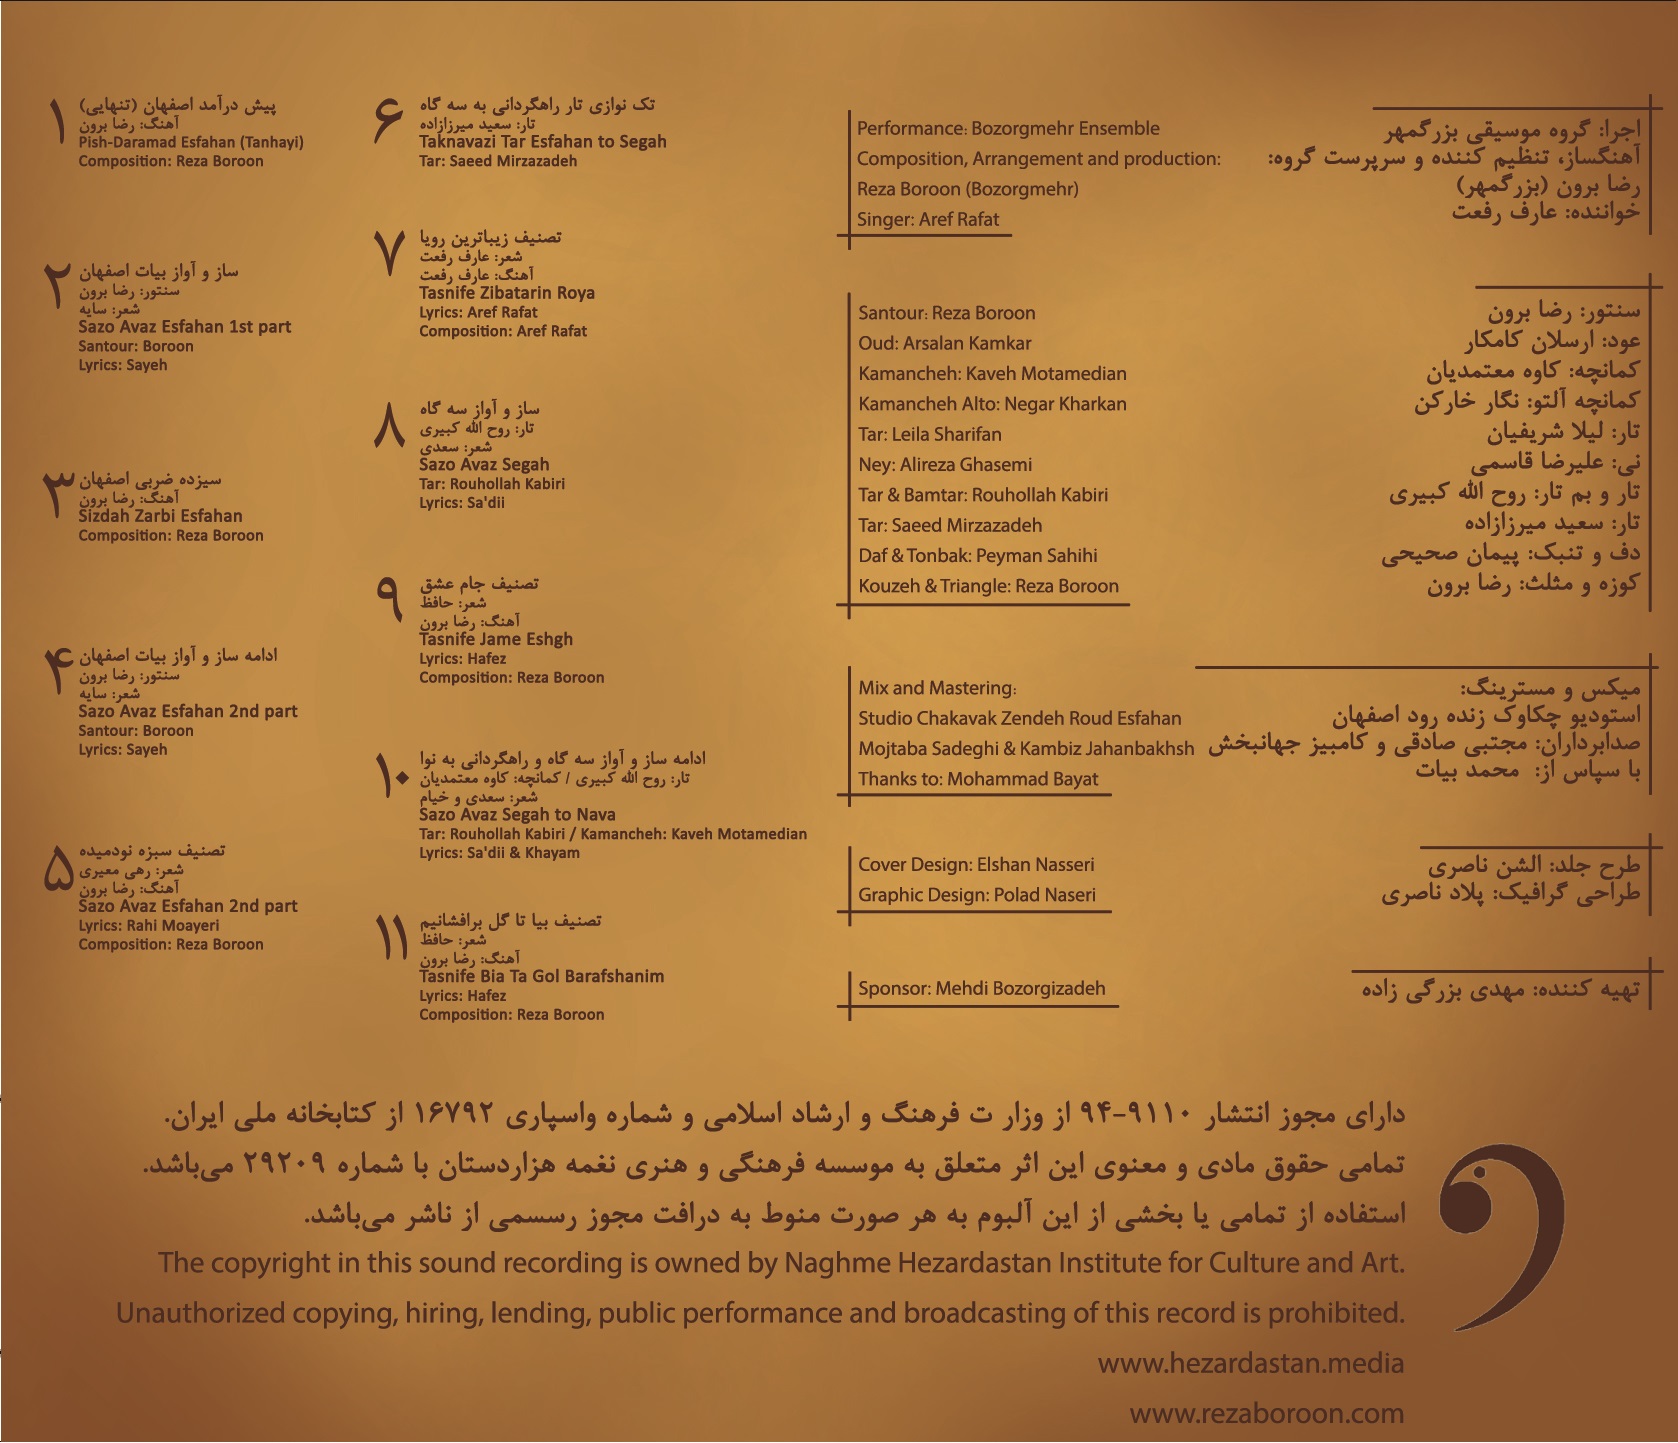 ۱
پیش درآمد اصفهان (تنهایی)
آهنگ: رضا برون
Pish-Daramad Esfahan (Tanhayi)
Composition: Reza Boroon
۲
ساز و آواز بیات اصفهان
سنتور: رضا برون
شعر: سایه
Sazo Avaz Esfahan 1st part
Santour: Boroon
Lyrics: Sayeh
۳
سیزده ضربی اصفهان
آهنگ: رضا برون
Sizdah Zarbi Esfahan
Composition: Reza Boroon
۴
ادامه ساز و آواز بیات اصفهان
سنتور: رضا برون
شعر: سایه
Sazo Avaz Esfahan 2nd part
Santour: Boroon
Lyrics: Sayeh
۵
تصنیف سبزه نودمیده
شعر: رهی معیری
آهنگ: رضا برون
Sazo Avaz Esfahan 2nd part
Lyrics: Rahi Moayeri
Composition: Reza Boroon
۶
تک نوازی تار راهگردانی به سه گاه
تار: سعید میرزازاده
Taknavazi Tar Esfahan to Segah
Tar: Saeed Mirzazadeh
۷
تصنیف زیباترین رویا
شعر: عارف رفعت
آهنگ: عارف رفعت
Tasnife Zibatarin Roya
Lyrics: Aref Rafat
Composition: Aref Rafat
۸
ساز و آواز سه گاه
تار: روح الله کبیری
شعر: سعدی
Sazo Avaz Segah
Tar: Rouhollah Kabiri
Lyrics: Sa'dii
۹
تصنیف جام عشق
شعر: حافظ
آهنگ: رضا برون
Tasnife Jame Eshgh
Lyrics: Hafez
Composition: Reza Boroon
۱۰
ادامه ساز و آواز سه گاه و راهگردانی به نوا
تار: روح الله کبیری / کمانچه: کاوه معتمدیان
شعر: سعدی و خیام
Sazo Avaz Segah to Nava
Tar: Rouhollah Kabiri / Kamancheh: Kaveh Motamedian
Lyrics: Sa'dii & Khayam
۱۱
تصنیف بیا تا گل برافشانیم
شعر: حافظ
آهنگ: رضا برون
Tasnife Bia Ta Gol Barafshanim
Lyrics: Hafez
Composition: Reza Boroon
Performance: Bozorgmehr Ensemble
Composition, Arrangement and production:
Reza Boroon (Bozorgmehr)
Singer: Aref Rafat
اجرا: گروه موسیقی بزرگمهر
آهنگساز، تنظیم کننده و سرپرست گروه:
رضا برون (بزرگمهر)
خواننده: عارف رفعت
Santour: Reza Boroon
Oud: Arsalan Kamkar
Kamancheh: Kaveh Motamedian
Kamancheh Alto: Negar Kharkan
Tar: Leila Sharifan
Ney: Alireza Ghasemi
Tar & Bamtar: Rouhollah Kabiri
Tar: Saeed Mirzazadeh
Daf & Tonbak: Peyman Sahihi
Kouzeh & Triangle: Reza Boroon
سنتور: رضا برون
عود: ارسلان کامکار
کمانچه: کاوه معتمدیان
کمانچه آلتو: نگار خارکن
تار: لیلا شریفیان
نی: علیرضا قاسمی
تار و بم تار: روح الله کبیری
تار: سعید میرزازاده
دف و تنبک: پیمان صحیحی
کوزه و مثلث: رضا برون
Mix and Mastering:
Studio Chakavak Zendeh Roud Esfahan
Mojtaba Sadeghi & Kambiz Jahanbakhsh
Thanks to: Mohammad Bayat
میکس و مسترینگ:
استودیو چکاوک زنده رود اصفهان
صدابرداران: مجتبی صادقی و کامبیز جهانبخش
با سپاس از: محمد بیات
Cover Design: Elshan Nasseri
Graphic Design: Polad Naseri
طرح جلد: الشن ناصری
طراحی گرافیک: پلاد ناصری
Sponsor: Mehdi Bozorgizadeh
تهیه کننده: مهدی بزرگی زاده
دارای مجوز انتشار ۹۱۱۰-۹۴ از وزار ت فرهنگ و ارشاد اسلامی و شماره واسپاری ۱۶۷۹۲ از کتابخانه ملی ایران.
تمامی حقوق مادی و معنوی این اثر متعلق به موسسه فرهنگی و هنری نغمه هزاردستان با شماره ۲۹۲۰۹ می‌باشد.
استفاده از تمامی یا بخشی از این آلبوم به هر صورت منوط به درافت مجوز رسسمی از ناشر می‌باشد.
The copyright in this sound recording is owned by Naghme Hezardastan Institute for Culture and Art.
Unauthorized copying, hiring, lending, public performance and broadcasting of this record is prohibited.
www.hezardastan.media
www.rezaboroon.com